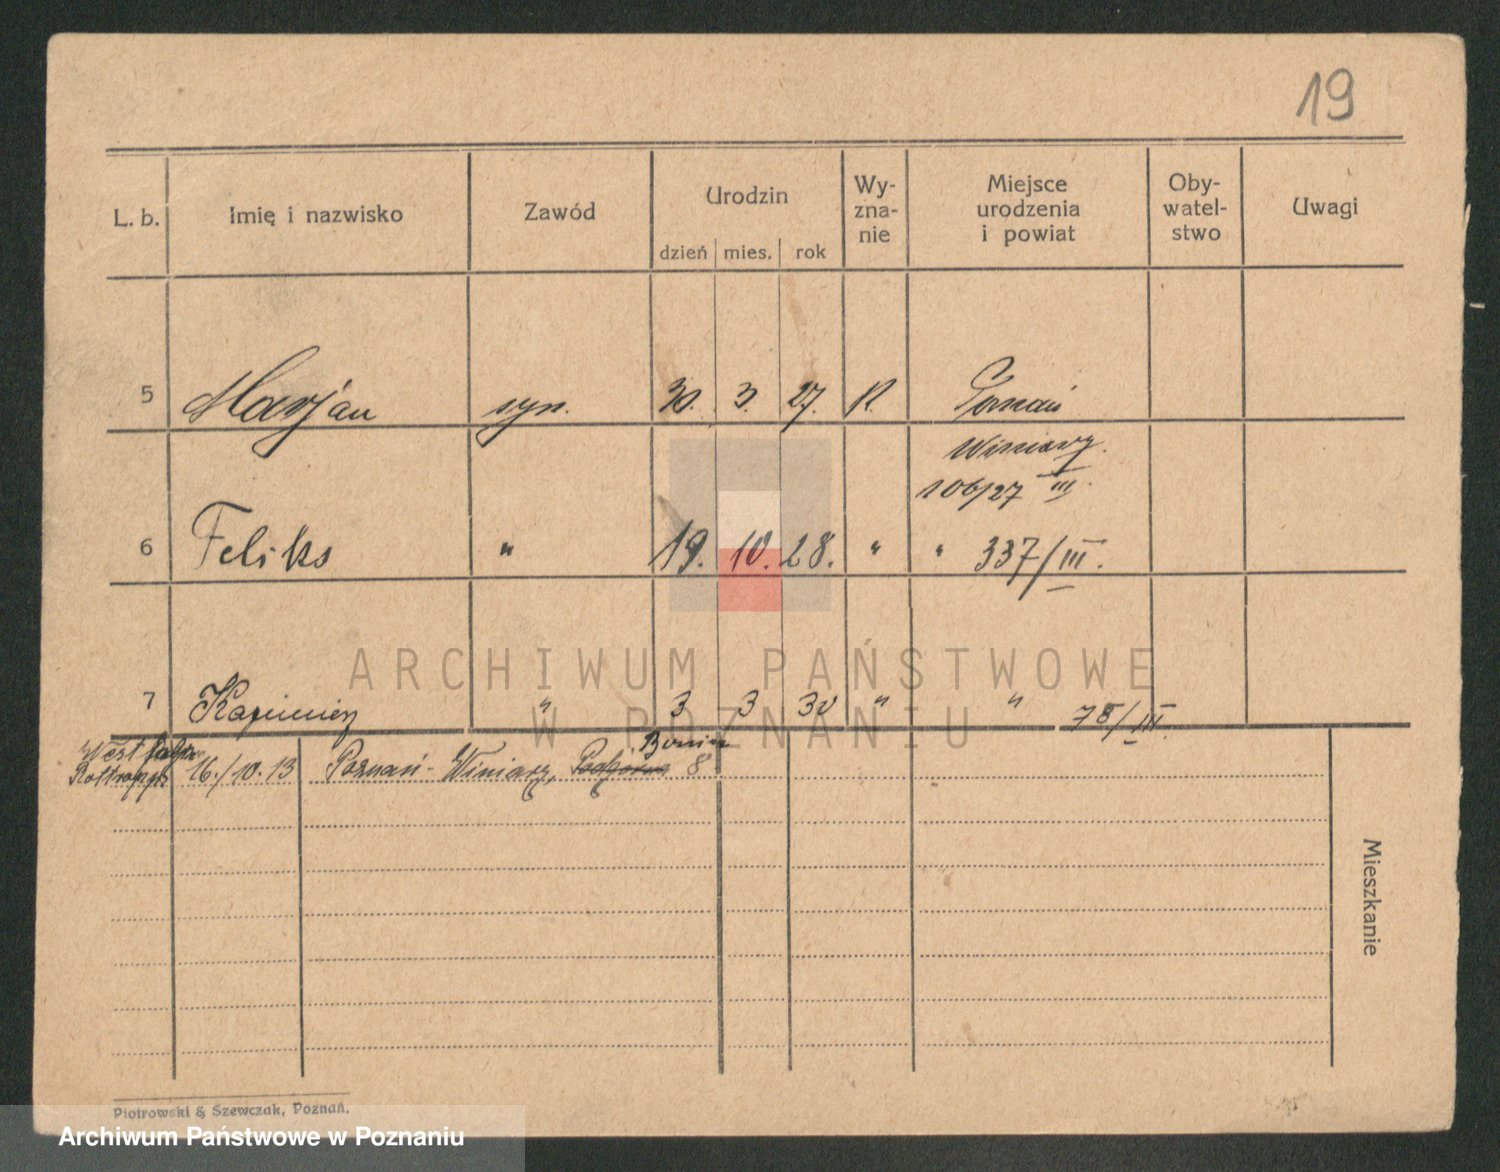 19
L. b. Imię i nazwisko Zawód Urodzin dzień mies. rok Wy-zna-nie Miejsce urodzenia i powiat Oby-watel-stwo Uwagi
5 Marjan syn. 30. 3. 27. R. Poznań
Winiary.
106/27 III.
6 Feliks " 19. 10. 28. " " 337/III.
7 Kazimierz " 3 3 30 " " 78/III.
ARCHIWUM PAŃSTWOWE
W POZNANIU
16./10. 13 Poznań-Winiary, 8
Mieszkanie
Piotrowski & Szewczak, Poznań.
Archiwum Państwowe w Poznaniu